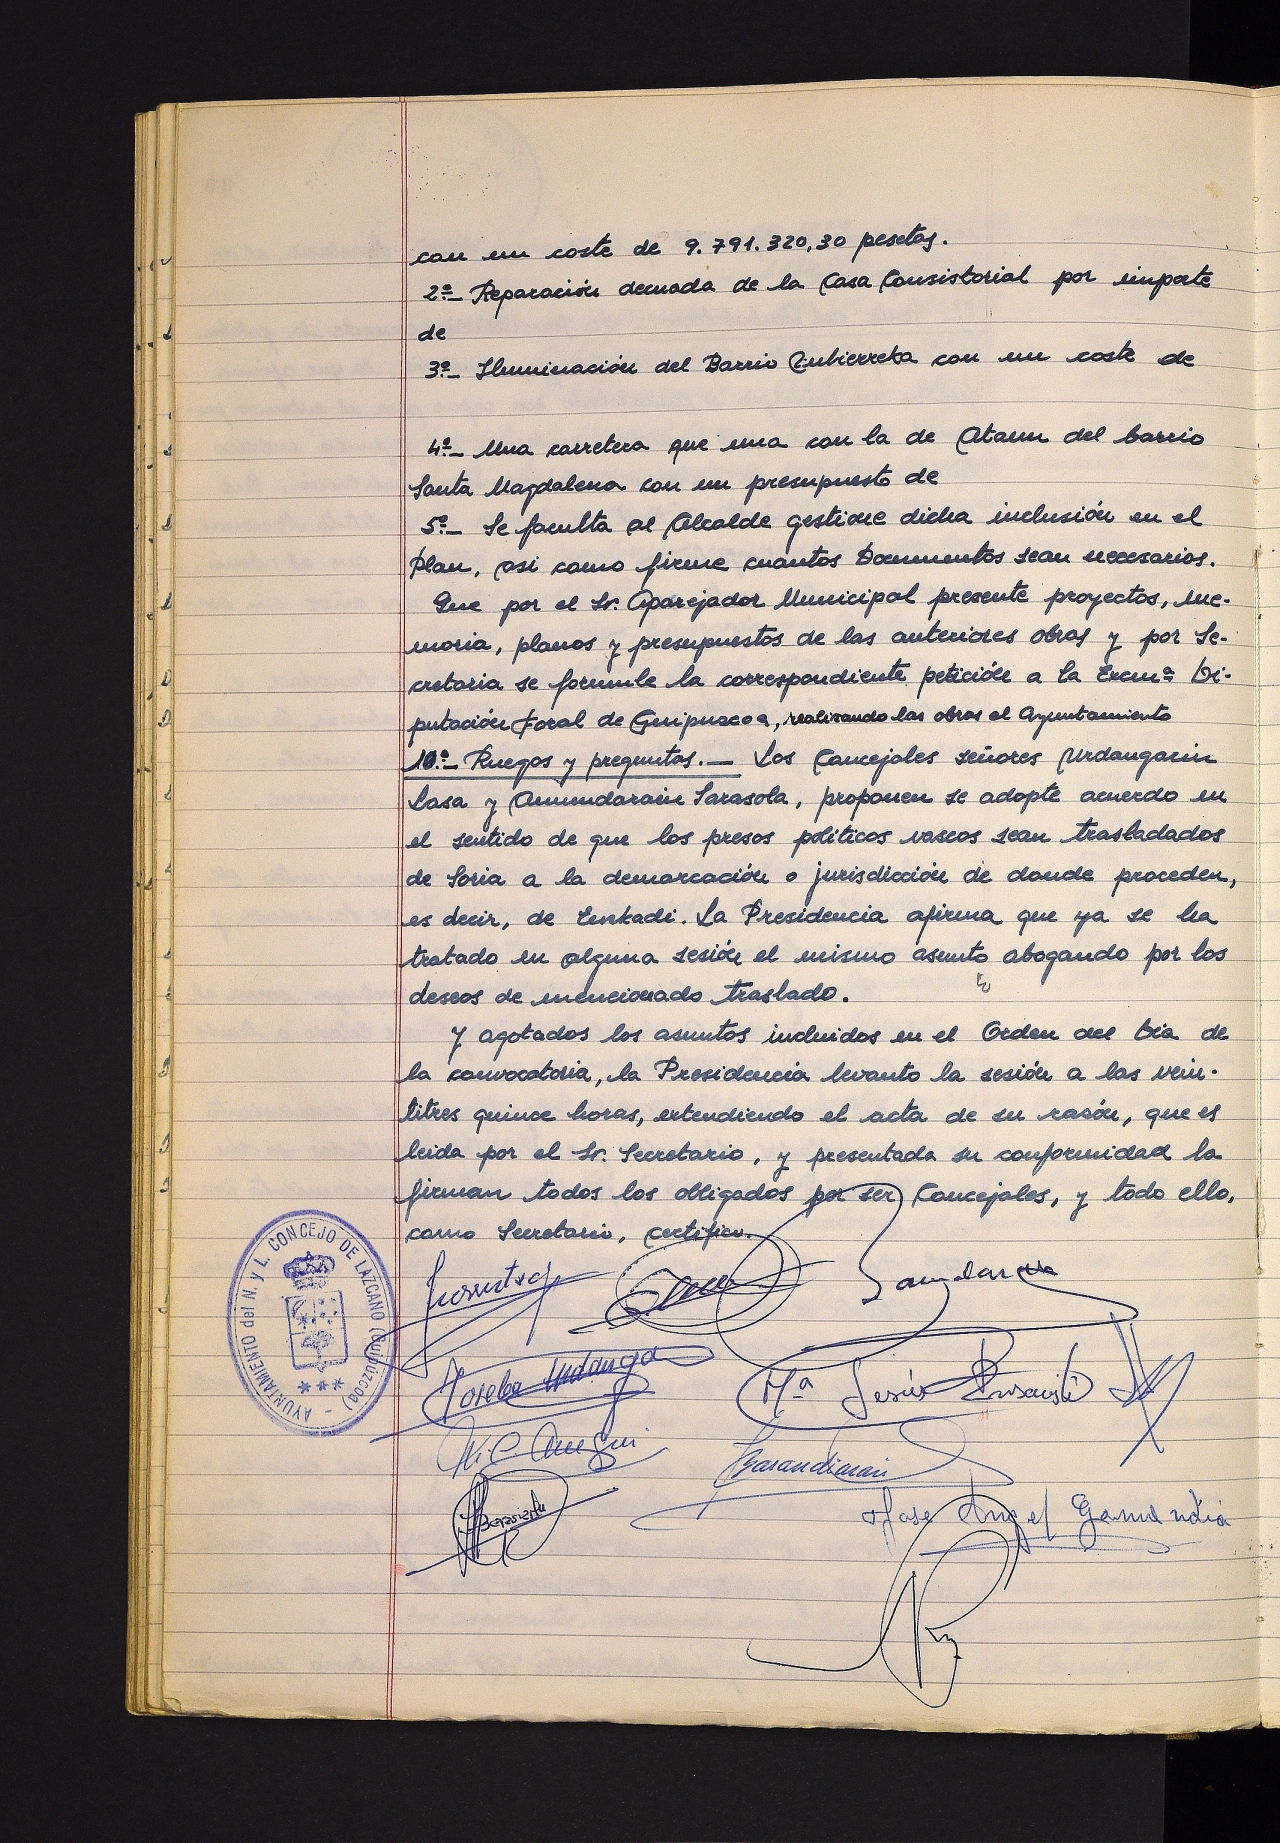 con un coste de 9.791.320,30 pesetas.
2º.- Reparación decuada de la Casa Consistorial por importe
de
3º.- Iluminación del Barrio Zubierreka con un coste de
4º.- Una carretera que una con la de Ataun del barrio
Santa Magdalena con un presupuesto de
5º.- Se faculta al Alcalde gestione dicha inclusión en el
Plan, asi como firme cuantos Documentos sean necesarios.
Que por el Sr. Aparejador Municipal presente proyectos, me-
moria, planos y presupuestos de las anteriores obras y por Se-
cretaria se formule la correspondiente petición a la Excmª Di-
putación Foral de Guipuzcoa, realizando las obras el Ayuntamiento
10º.- Ruegos y preguntas.- Los Concejales señores Urdangarin
Lasa y Amundarain Sarasola, proponen se adopte acuerdo en
el sentido de que los presos politicos vascos sean trasladados
de Soria a la demarcación o jurisdicción de donde proceden,
es decir, de Euskadi. La Presidencia afirma que ya se ha
tratado en alguna sesión el mismo asunto abogando por los
deseos de mencionado traslado.
Y agotados los asuntos incluidos en el Orden del Dia de
la convocatoria, la Presidencia levanto la sesión a las vein-
titres quince horas, extendiendo el acta de su razón, que es
leida por el Sr. Secretario, y presentada su conformidad la
firman todos los obligados por ser Concejales, y todo ello,
como Secretario, certifico.
AYUNTAMIENTO del N. y L. CONCEJO DE LAZCANO (Guipúzcoa)
Joseba Urdanga
Mª Jesús
Barandiaran
Jose Angel Garmendia